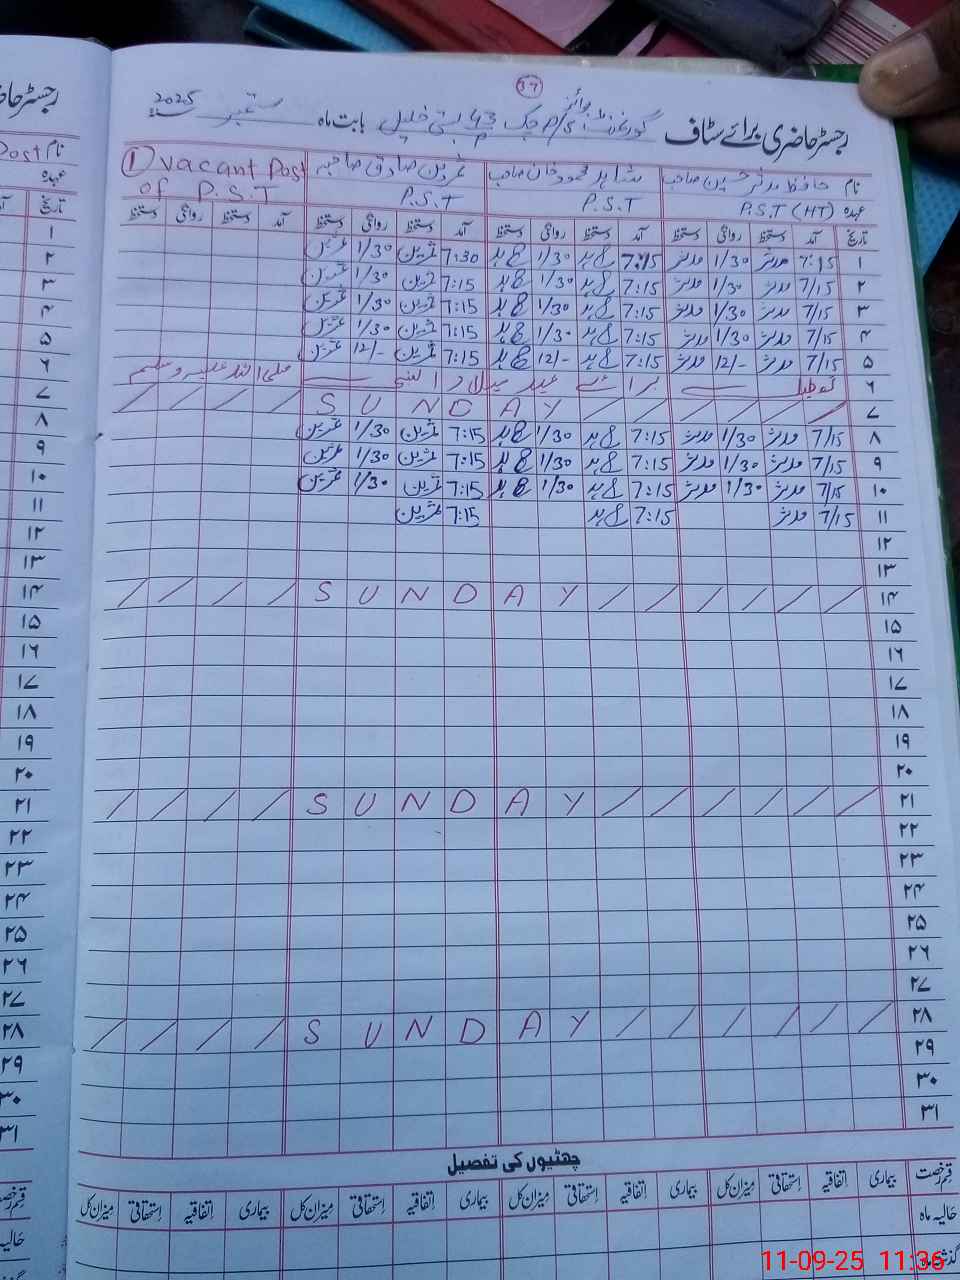 37
رجسٹر حاضری برائے سٹاف گورنمنٹ بوائز P/S چک 43 بستی خلیل بابت ماہ ستمبر 2025
نام حافظ مدثر حسین صاحب شاہد محمود خان صاحب ثمرین صادق صاحبہ ① Vacant Post
عہدہ P.S.T (HT) P.S.T P.S.T of P.S.T
تاریخ آمد دستخط روانگی دستخط آمد دستخط روانگی دستخط آمد دستخط روانگی دستخط آمد دستخط روانگی دستخط
۱ 7:15 مدثر 1/30 مدثر 7:15 1/30 7:30 ثمرین 1/30 ثمرین
۲ 7/15 مدثر 1/30 مدثر 7:15 1/30 7:15 ثمرین 1/30 ثمرین
۳ 7/15 مدثر 1/30 مدثر 7:15 1/30 7:15 ثمرین 1/30 ثمرین
۴ 7/15 مدثر 1/30 مدثر 7:15 1/30 7:15 ثمرین 1/30 ثمرین
۵ 7/15 مدثر 12/- مدثر 7:15 12/- 7:15 ثمرین 12/- ثمرین
۶ تعطیل برائے عید میلاد النبی صلی اللہ علیہ وسلم
۷ SUNDAY
۸ 7/15 مدثر 1/30 مدثر 7:15 1/30 7:15 ثمرین 1/30 ثمرین
۹ 7/15 مدثر 1/30 مدثر 7:15 1/30 7:15 ثمرین 1/30 ثمرین
۱۰ 7/15 مدثر 1/30 مدثر 7:15 1/30 7:15 ثمرین 1/30 ثمرین
۱۱ 7/15 مدثر 7:15 7:15 ثمرین
۱۲
۱۳
۱۴ SUNDAY
۱۵
۱۶
۱۷
۱۸
۱۹
۲۰
۲۱ SUNDAY
۲۲
۲۳
۲۴
۲۵
۲۶
۲۷
۲۸ SUNDAY
۲۹
۳۰
۳۱
چھٹیوں کی تفصیل
قسم رخصت بیماری اتفاقیہ استحقاقی میزان کل بیماری اتفاقیہ استحقاقی میزان کل بیماری اتفاقیہ استحقاقی میزان کل بیماری اتفاقیہ استحقاقی میزان کل
حالیہ ماہ
گذشتہ ماہ
نام Post
عہدہ
تاریخ
۱
۲
۳
۴
۵
۶
۷
۸
۹
۱۰
۱۱
۱۲
۱۳
۱۴
۱۵
۱۶
۱۷
۱۸
۱۹
۲۰
۲۱
۲۲
۲۳
۲۴
۲۵
۲۶
۲۷
۲۸
۲۹
۳۰
۳۱
11-09-25 11:36